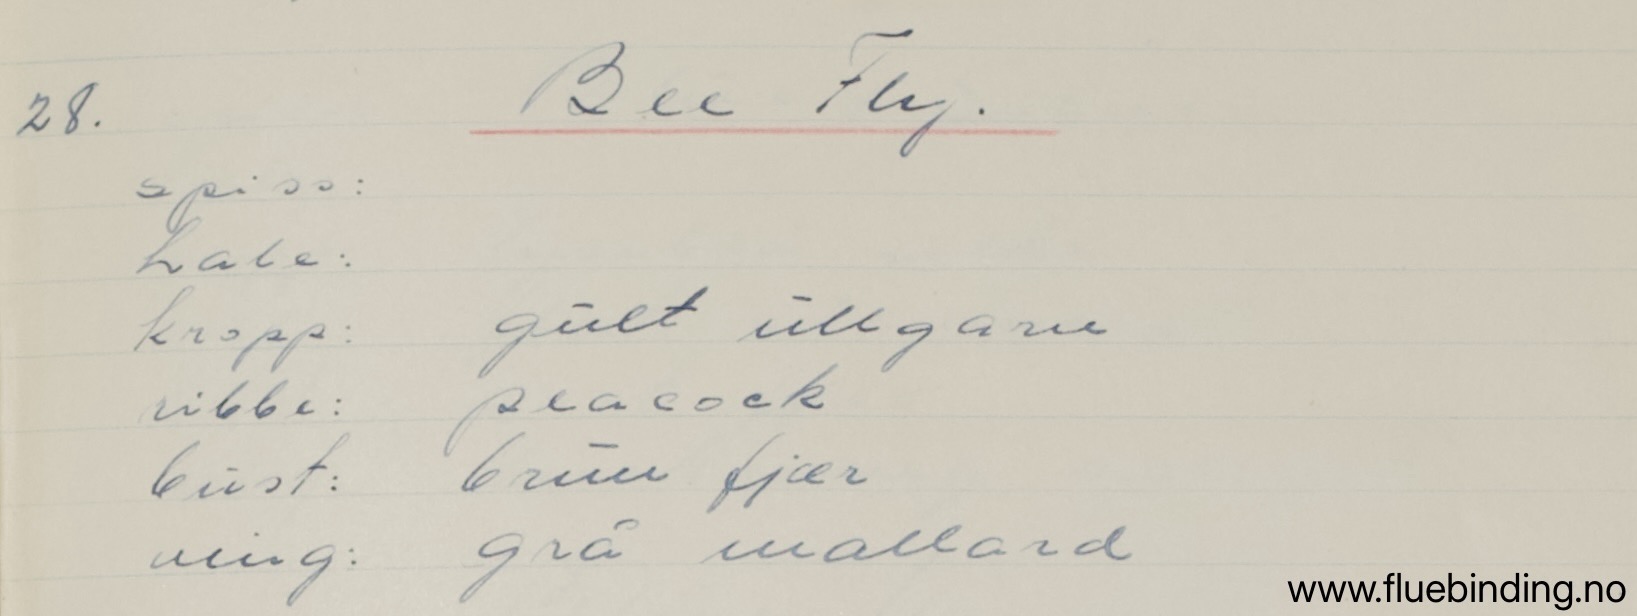 28. Bee Fly.
spiss:
hale:
kropp: gult ullgarn
ribbe: peacock
bust: brun fjær
ving: grå mallard
www.fluebinding.no